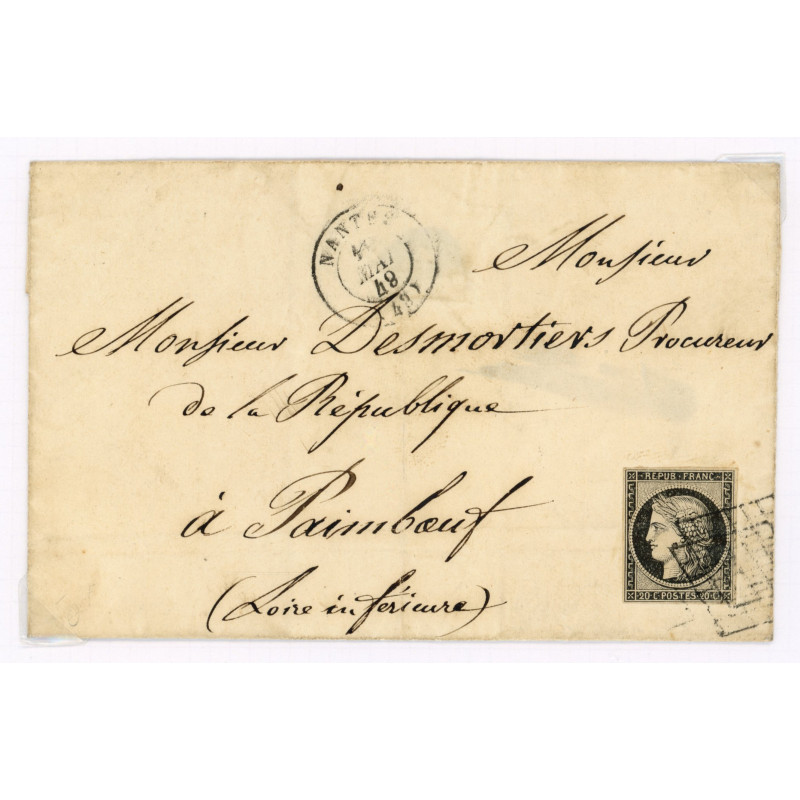 NANTES
MAI
48
(42)
Monsieur
Monsieur Desmortiers Procureur
de la République
à Paimbœuf
(Loire inférieure)
REPUB. FRANC.
20 C. POSTES 20 C.